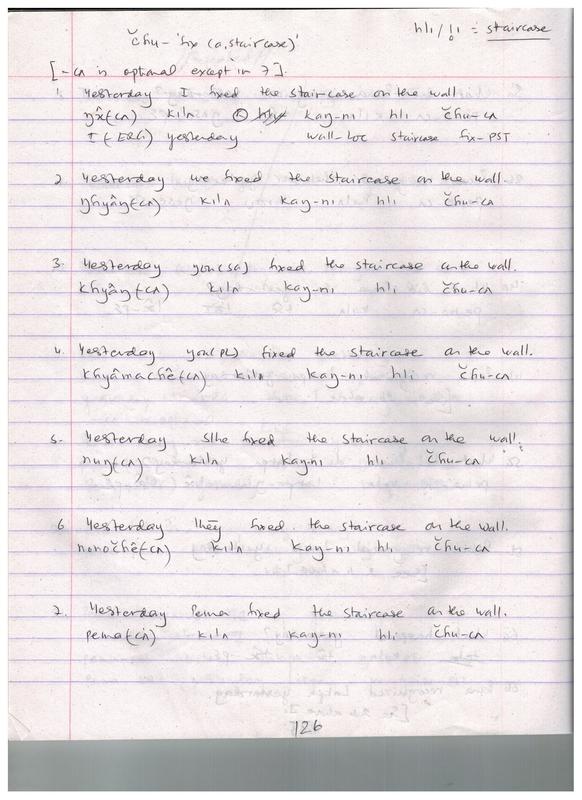 hli/l̥i = staircase
čhu- 'fix (a, staircase)'
[-cʌ is optional except in 7].
1. Yesterday I fixed the staircase on the wall
ŋx̂(cʌ) kilʌ kaŋ-ni hli čhu-cʌ
I (-ERG) yesterday wall-Loc staircase fix-PST
2. Yesterday we fixed the staircase on the wall.
ŋhyâŋ(cʌ) kilʌ kaŋ-ni hli čhu-cʌ
3. Yesterday you(SG) fixed the staircase on the wall.
khyâŋ(cʌ) kilʌ kaŋ-ni hli čhu-cʌ
4. Yesterday you(PL) fixed the staircase on the wall.
khyâmachê(cʌ) kilʌ kaŋ-ni hli čhu-cʌ
5. Yesterday s/he fixed the staircase on the wall.
nuŋ(cʌ) kilʌ kaŋ-ni hli čhu-cʌ
6 Yesterday they fixed the staircase on the wall.
nonočhê(cʌ) kilʌ kaŋ-ni hli čhu-cʌ
7. Yesterday Pema fixed the staircase on the wall.
pema(cʌ) kilʌ kaŋ-ni hli čhu-cʌ
126